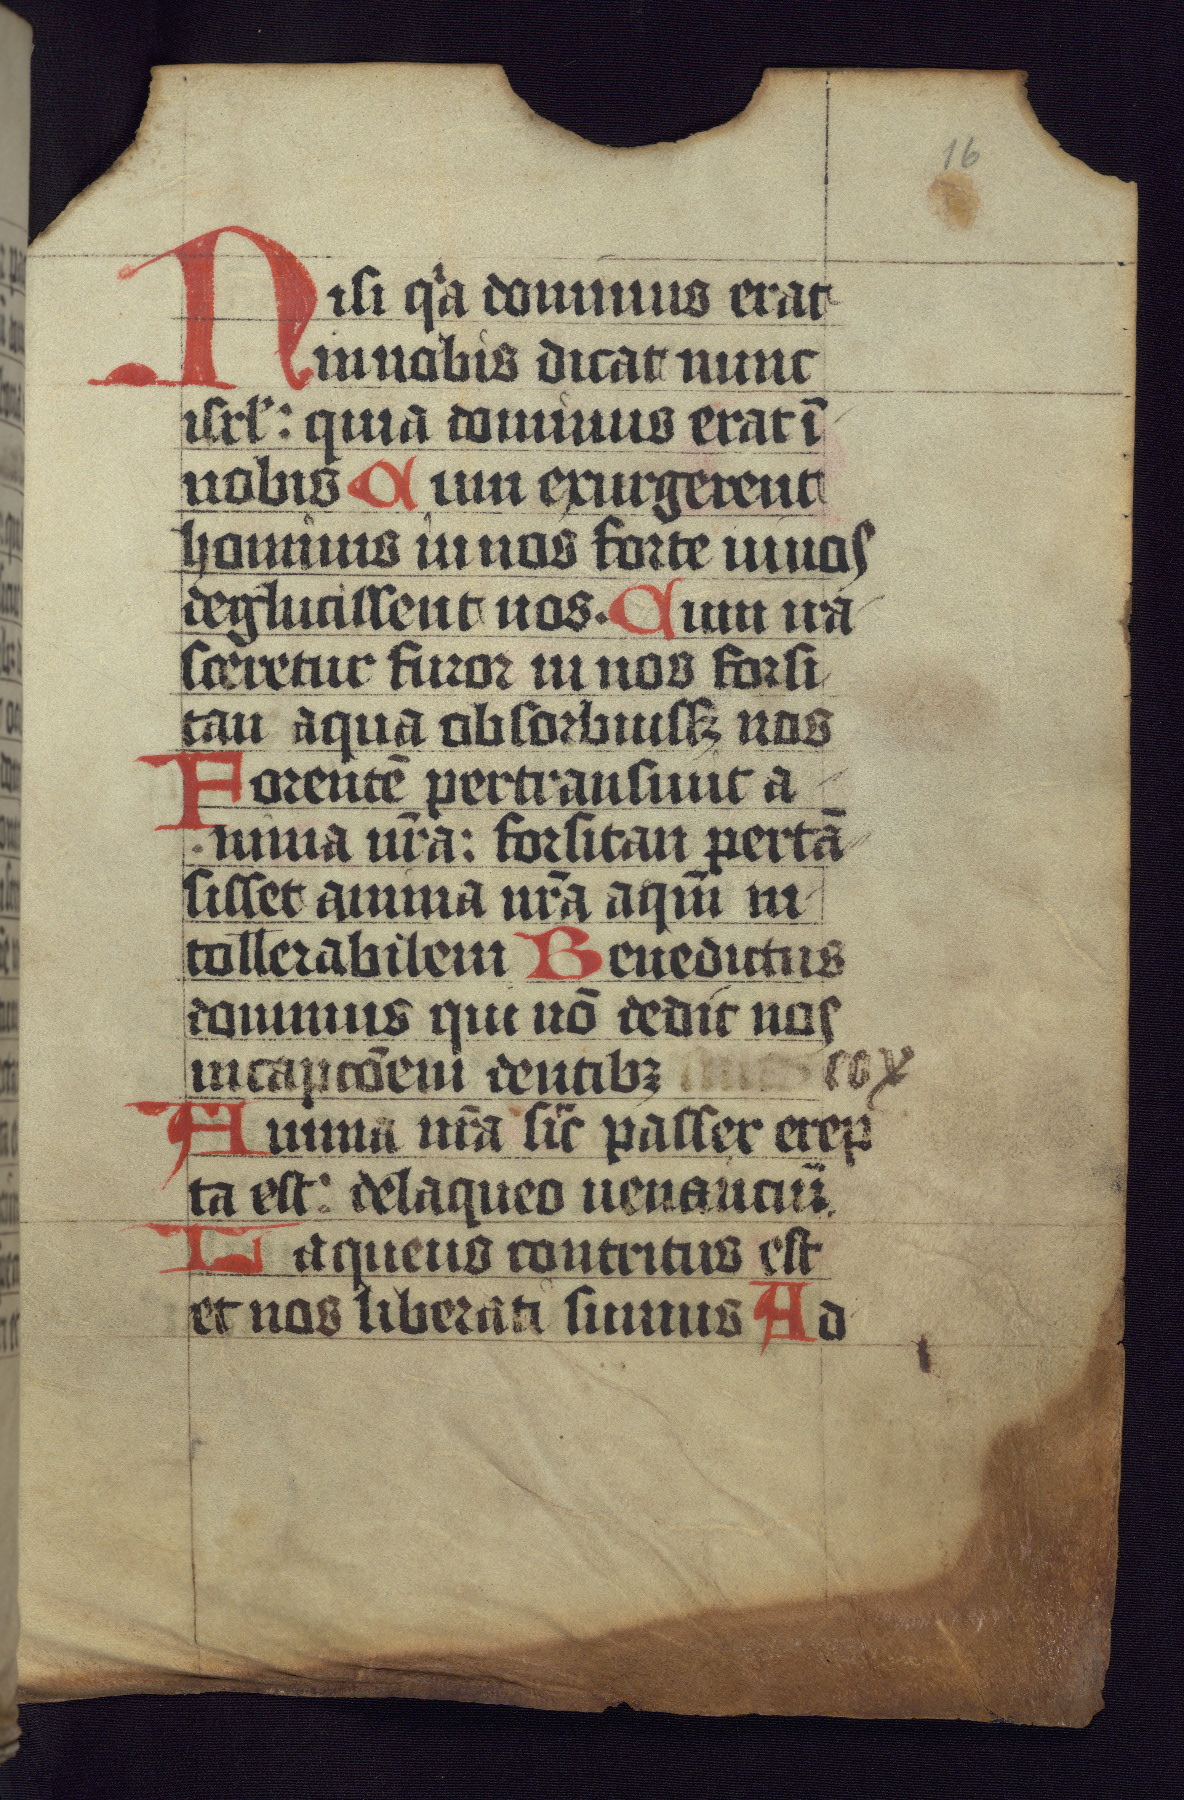 16
Nisi qͥa dominus erat
in nobis dicat nunc
isrl̓: quia dominus erat ī
nobis Cum exurgerent
homines in nos forte uiuos
deglutissent nos. Cum ira
sceretur furor in nos forsi
tan aqua obsorbuissꝫ nos
Forentē pertransiuit a
nima nr̄a: forsitan pertā
sisset anima nr̄a aqm̄ in
tollerabilem Benedictus
dominus qui nō dedit nos
in captōem dentibꝫ eoꝝ
Anima nr̄a sic̄ passer erep
ta est: de laqueo uenanciū.
Laqueus contritus est
et nos liberati sumus Ad